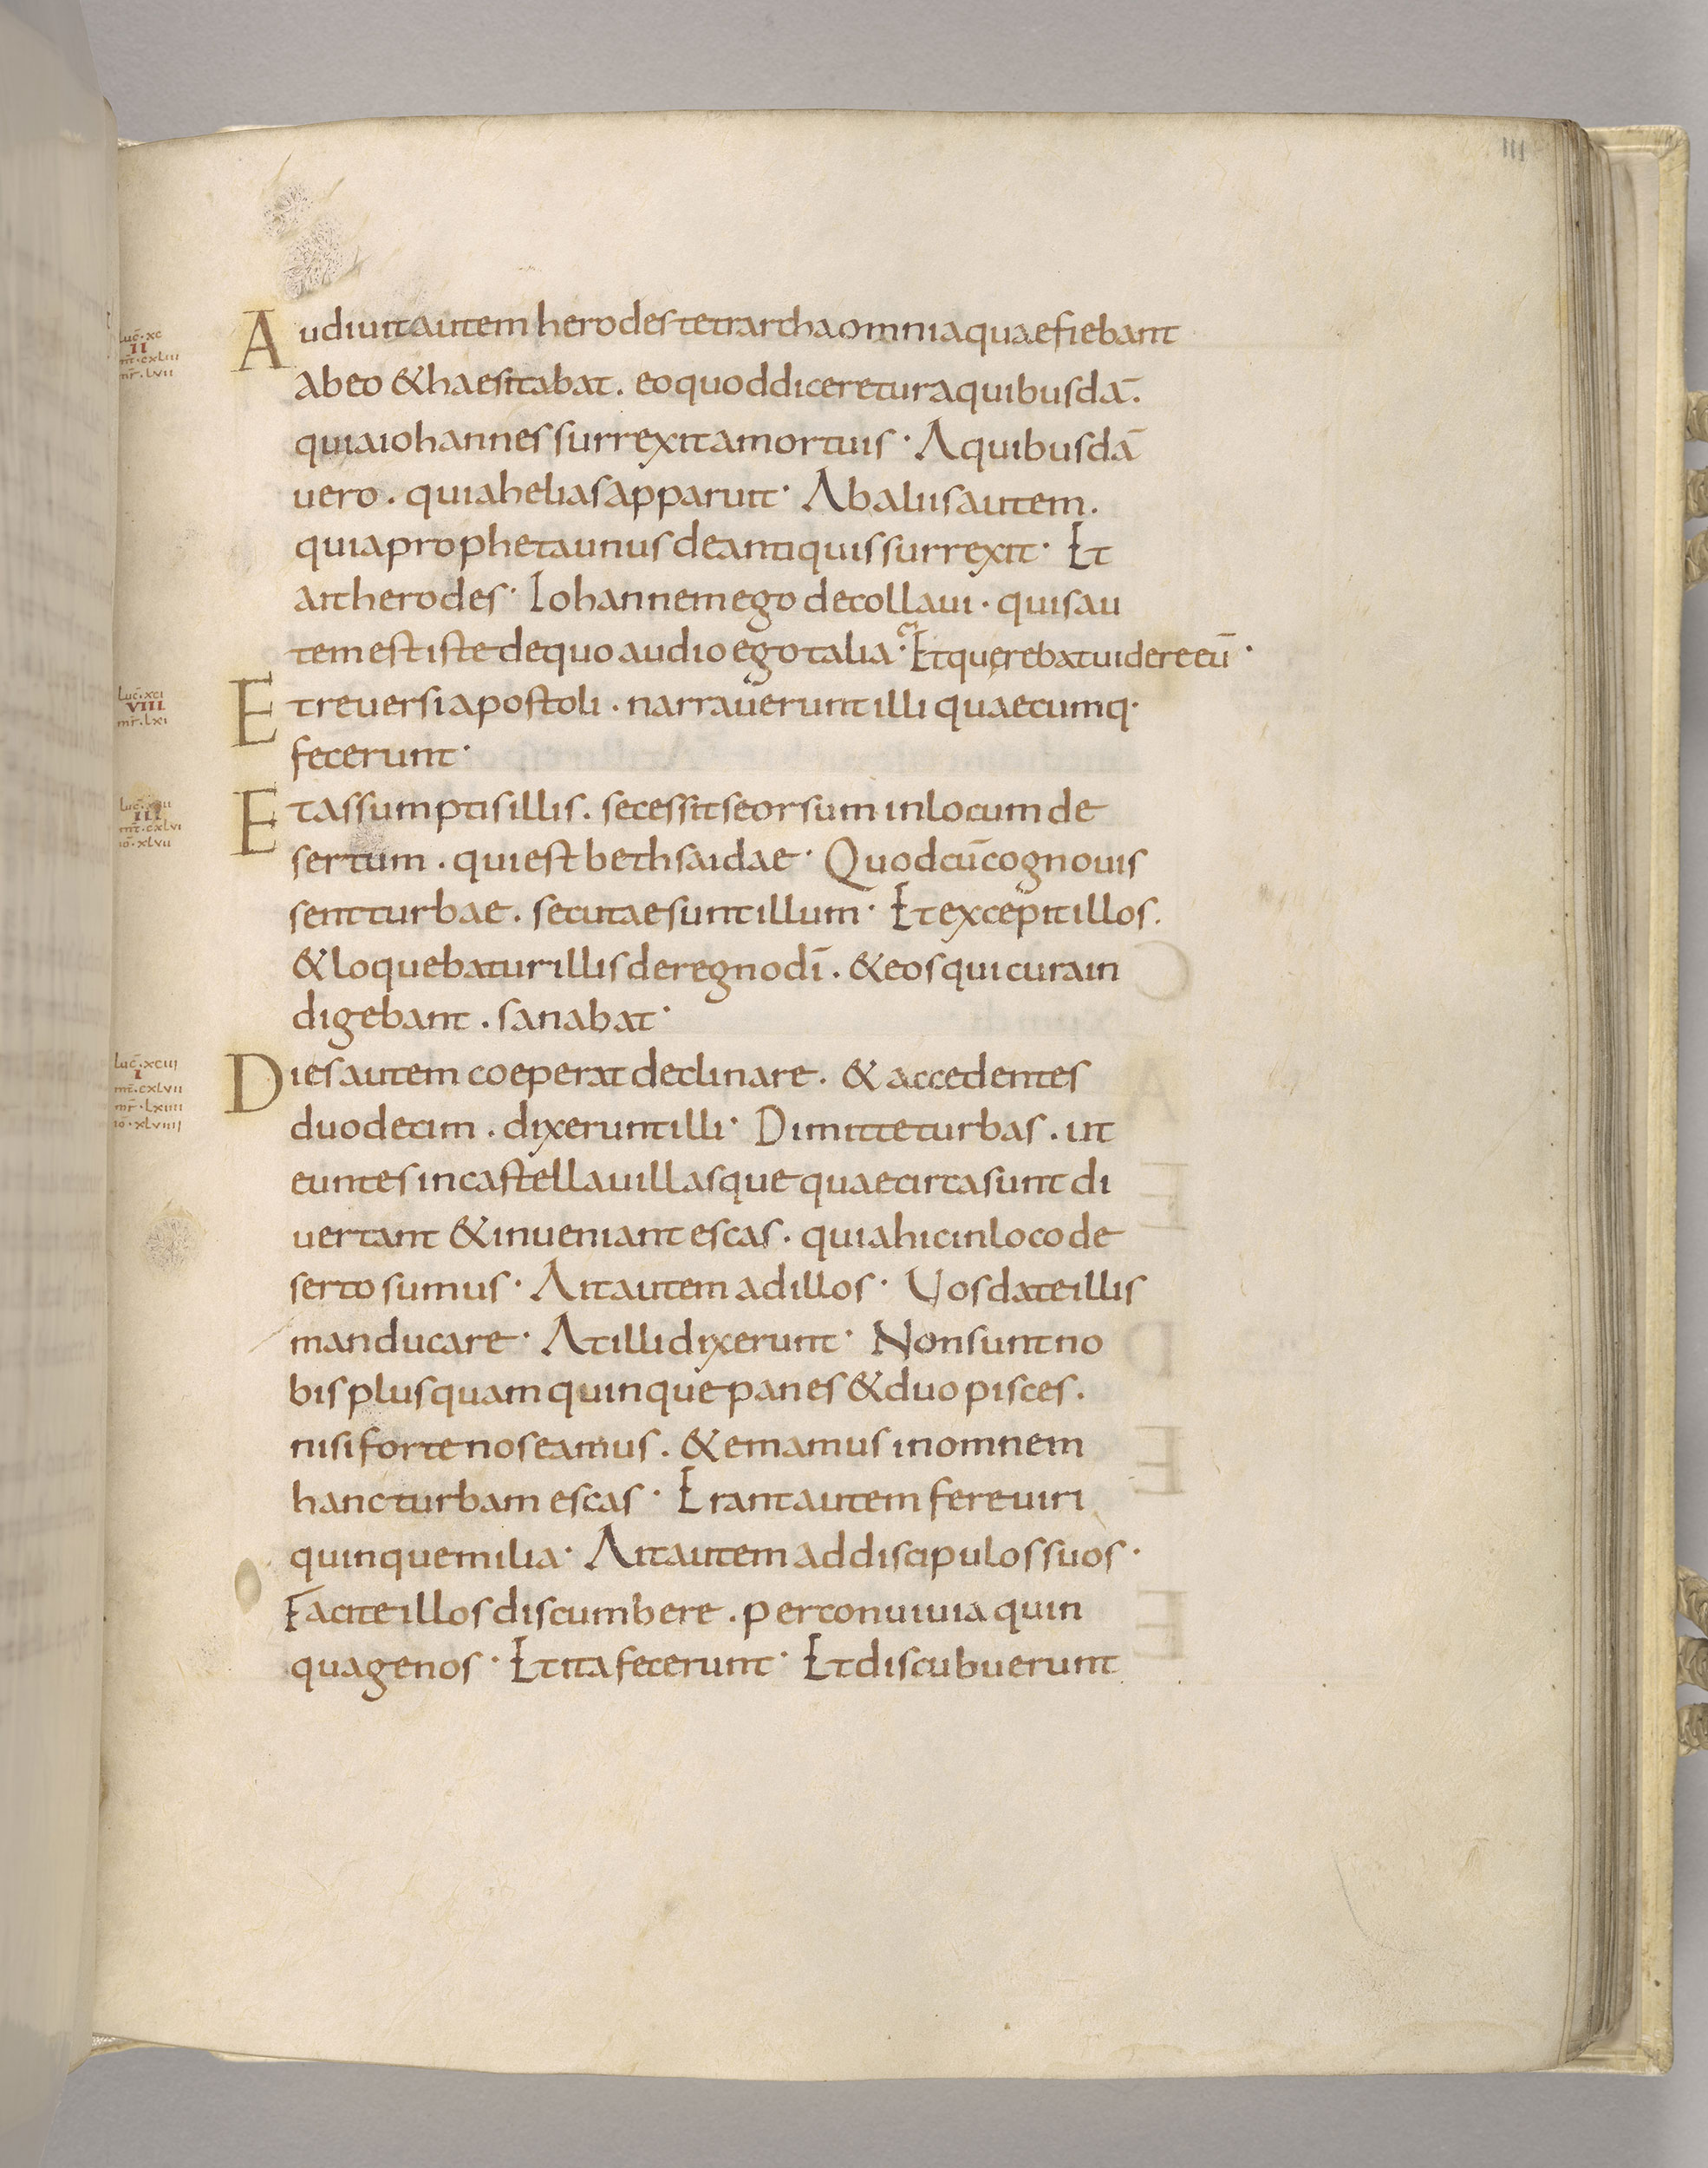 111
Luc̄·xc
II
mt̄·cxliii
mr̄·lvii
Audiuit autem herodes tetrarcha omnia quae fiebant
ab eo & haesitabat. eo quod diceretur a quibusdā.
quia iohannes surrexit a mortuis· A quibusdā
uero. quia helias apparuit· Ab aliis autem.
quia propheta unus de antiquis surrexit· Et
ait herodes· Iohannem ego decollaui. quis au
tem est iste de quo audio ego talia· Et querebat uidere eū·
Luc̄·xci
VIII
mr̄·lxi
Et reuersi apostoli. narrauerunt illi quaecumq·
fecerunt·
III
mt̄·cxlvi
io̅·xlvii
Et assumptis illis. secessit seorsum in locum de
sertum. qui est bethsaidae· Quod cū cognouis
sent turbae. secutae sunt illum· Et excepit illos.
& loquebatur illis de regno dī. & eos qui cura in
digebant. sanabat·
Luc̄·xciii
I
mt̄·cxlvii
mr̄·lxiiii
io̅·xlviiii
Dies autem coeperat declinare. & accedentes
duodecim. dixerunt illi· Dimitte turbas. ut
euntes in castella uillasque quae circa sunt di
uertant & inueniant escas. quia hic in loco de
serto sumus· Ait autem ad illos· Uos date illis
manducare· At illi dixerunt· Non sunt no
bis plus quam quinque panes & duo pisces.
nisi forte nos eamus. & emamus in omnem
hanc turbam escas· Erant autem fere uiri
quinque milia· Ait autem ad discipulos suos·
Facite illos discumbere. per conuiuia quin
quagenos· Et ita fecerunt· Et discubuerunt